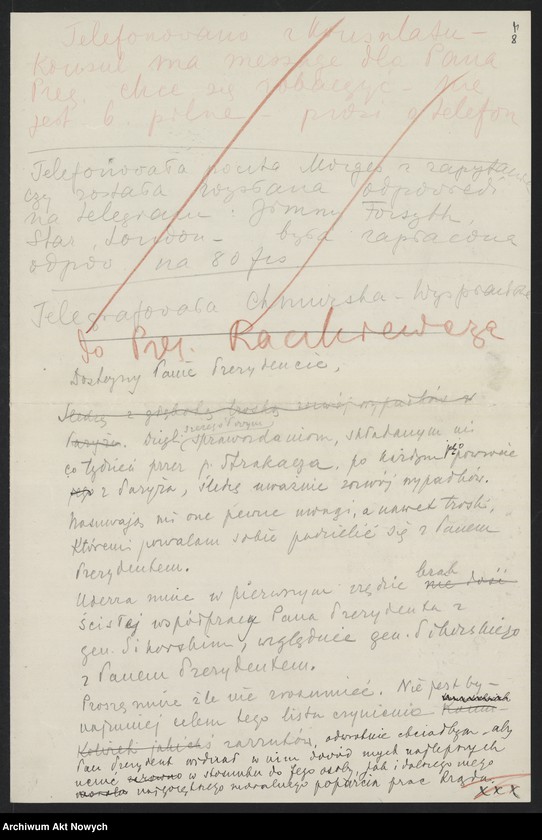 4
8
Telefonowano z Konsulatu –
Konsul ma message dla Pana
Prez. chce się zobaczyć – nie
jest b. pilne – prosi o telefon
Telefonowała poczta Morges z zapytaniem
czy została wysłana odpowiedź
na telegram. Jimmy Forsyth
Star, London – była zapłacona
odpow na 80 frs
Telegrafowała
do Prez. Raczkiewicza
Dostojny Panie Prezydencie,
Śledzę z głęboką troską rozwój wypadków w
Paryżu. Dzięki sprawozdaniom, składanym mi
co tydzień przez p. Strakacza, po każdym jego powrocie
z Paryża, śledzę uważnie rozwój wypadków.
Nasuwają mi one pewne uwagi, a nawet troski,
któremi pozwalam sobie podzielić się z Panem
Prezydentem.
Uderza mnie w pierwszym rzędzie brak nie dość
ścisłej współpracy Pana Prezydenta z
gen. Sikorskim, względnie gen. Sikorskiego
z Panem Prezydentem.
Proszę mnie źle nie zrozumieć. Nie jest by-
najmniej celem tego listu czynienie
zarzutów, odwrotnie chciałbym – aby
Pan Prezydent widział w nim dowód mych najlepszych
uczuć w stosunku do Jego osoby, jak i dalszego mego
najgorętszego moralnego poparcia prac Rządu.
xxx
Archiwum Akt Nowych